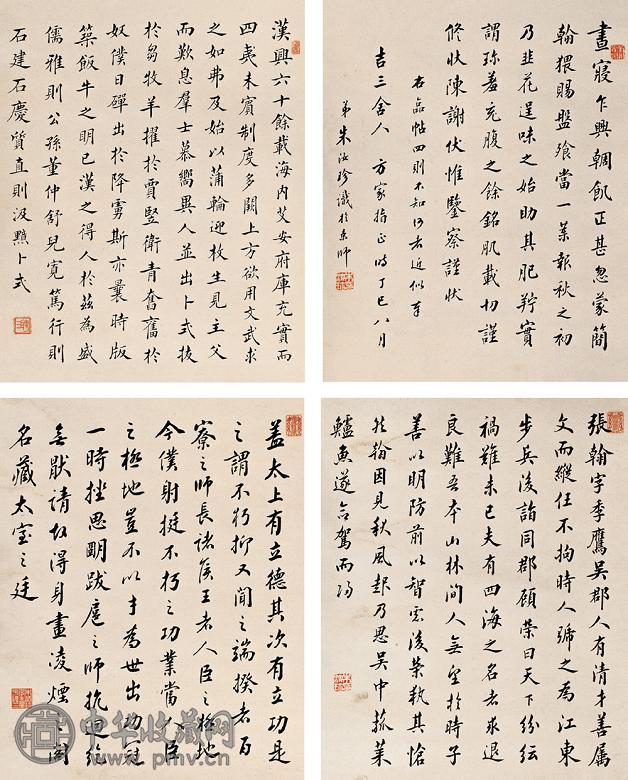 晝寢乍興輖飢正甚忽蒙簡
翰猥賜盤飧當一葉報秋之初
乃韭花逞味之始助其肥羜實
謂珍羞充腹之餘銘肌載切謹
修狀陳謝伏惟鑒察謹狀
右臨帖四則不知何者近似奉
吉三舍人 方家指正 時丁巳八月
弟朱汝珍識於京師
漢興六十餘載海內艾安府庫充實而
四夷未賓制度多闕上方欲用文武求
之如弗及始以蒲輪迎枚生見主父
而歎息羣士慕嚮異人並出卜式拔
於芻牧羊擢於賈豎衛青奮奮於
奴僕日磾出於降虜斯亦曩時版
築飯牛之明已漢之得人於茲為盛
儒雅則公孫董仲舒兒寬篤行則
石建石慶質直則汲黯卜式
張翰字季鷹吳郡人有清才善屬
文而縱任不拘時人號之為江東
步兵後謂同郡顧榮曰天下紛紜
禍難未已夫有四海之名者求退
良難吾本山林間人無望於時子
善以明防前以智慮後榮執其愴
然翰因見秋風起乃思吳中菰菜
鱸魚遂命駕而歸
蓋太上有立德其次有立功是
之謂不朽抑又聞之端揆者百
寮之師長諸侯王者人臣之極地
今僕射挺不朽之功業當人臣
之極地豈不以才為世出功冠
一時挫思明跋扈之師抗迴紇
無厭請故得身畫凌煙之閣
名藏太室之廷
中华收藏网
www.pmv.cn